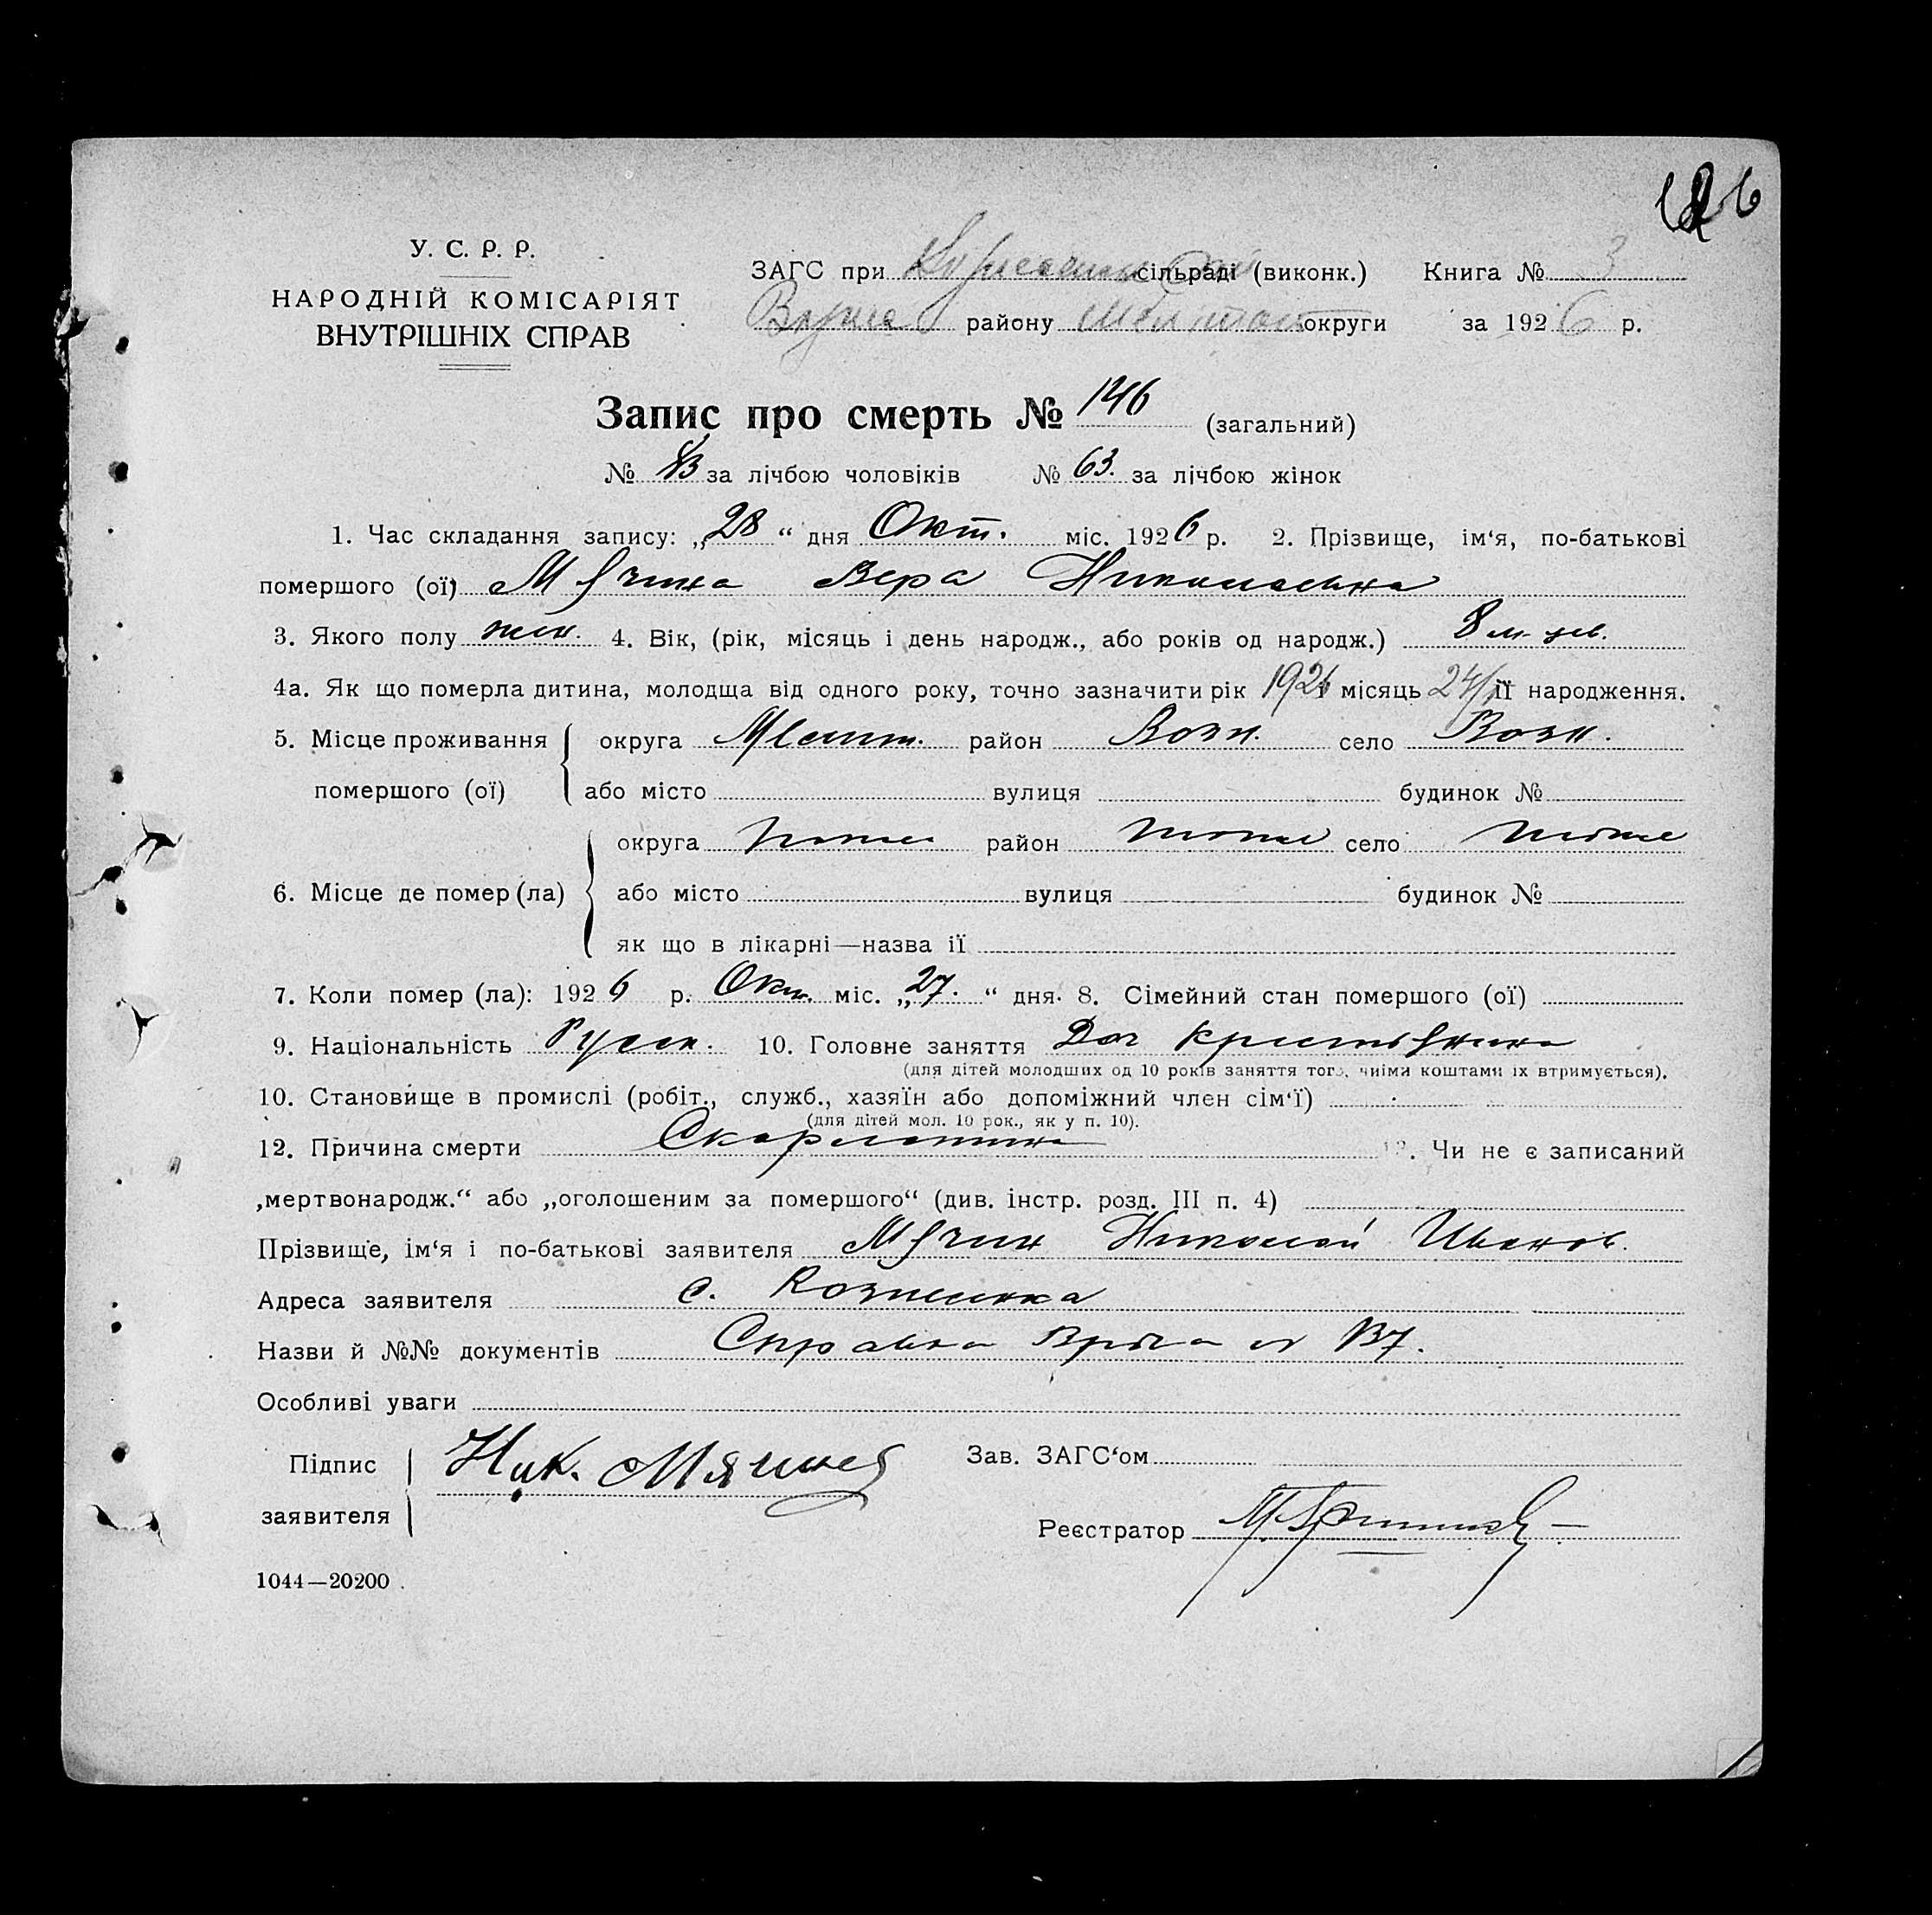 126
У. С. Р. Р.
НАРОДНІЙ КОМІСАРІЯТ
ВНУТРІШНІХ СПРАВ
ЗАГС при сільраді (виконк.) Книга № 3
району округи за 1926 р.
Запис про смерть № 146 (загальний)
№ за лічбою чоловіків № 63. за лічбою жінок
1. Час складання запису: „28“ дня Окт. міс. 1926 р. 2. Прізвище, ім‘я, по-батькові
помершого (ої) Мячина Вера Николаевна
3. Якого полу жен. 4. Вік, (рік, місяць і день народж., або років од народж.) 8 м-цев.
4а. Як що померла дитина, молодща від одного року, точно зазначити рік 1926 місяць 24/ її народження.
5. Місце проживання округа Мелит. район Возн. село Возн.
помершого (ої) або місто вулиця будинок №
округа тоже район тоже село тоже
6. Місце де помер (ла) або місто вулиця будинок №
як що в лікарні—назва її
7. Коли помер (ла): 1926 р. Окт. міс. „27.“ дня. 8. Сімейний стан помершого (ої)
9. Національність Русск. 10. Головне заняття Доч крестьянина
(для дітей молодших од 10 років заняття того, чиїми коштами їх втримується).
10. Становище в промислі (робіт., служб., хазяїн або допоміжний член сім‘ї)
(для дітей мол. 10 рок., як у п. 10).
12. Причина смерти Скарлатина 13. Чи не є записаний
„мертвонародж.“ або „оголошеним за помершого“ (див. інстр. розд. III п. 4)
Прізвище, ім‘я і по-батькові заявителя Мячин Николай Иванов.
Адреса заявителя с. Вознесенка
Назви й №№ документів Справка Врача
Особливі уваги
Підпис Ник. Мячин Зав. ЗАГС‘ом
заявителя
Реєстратор
1044—20200